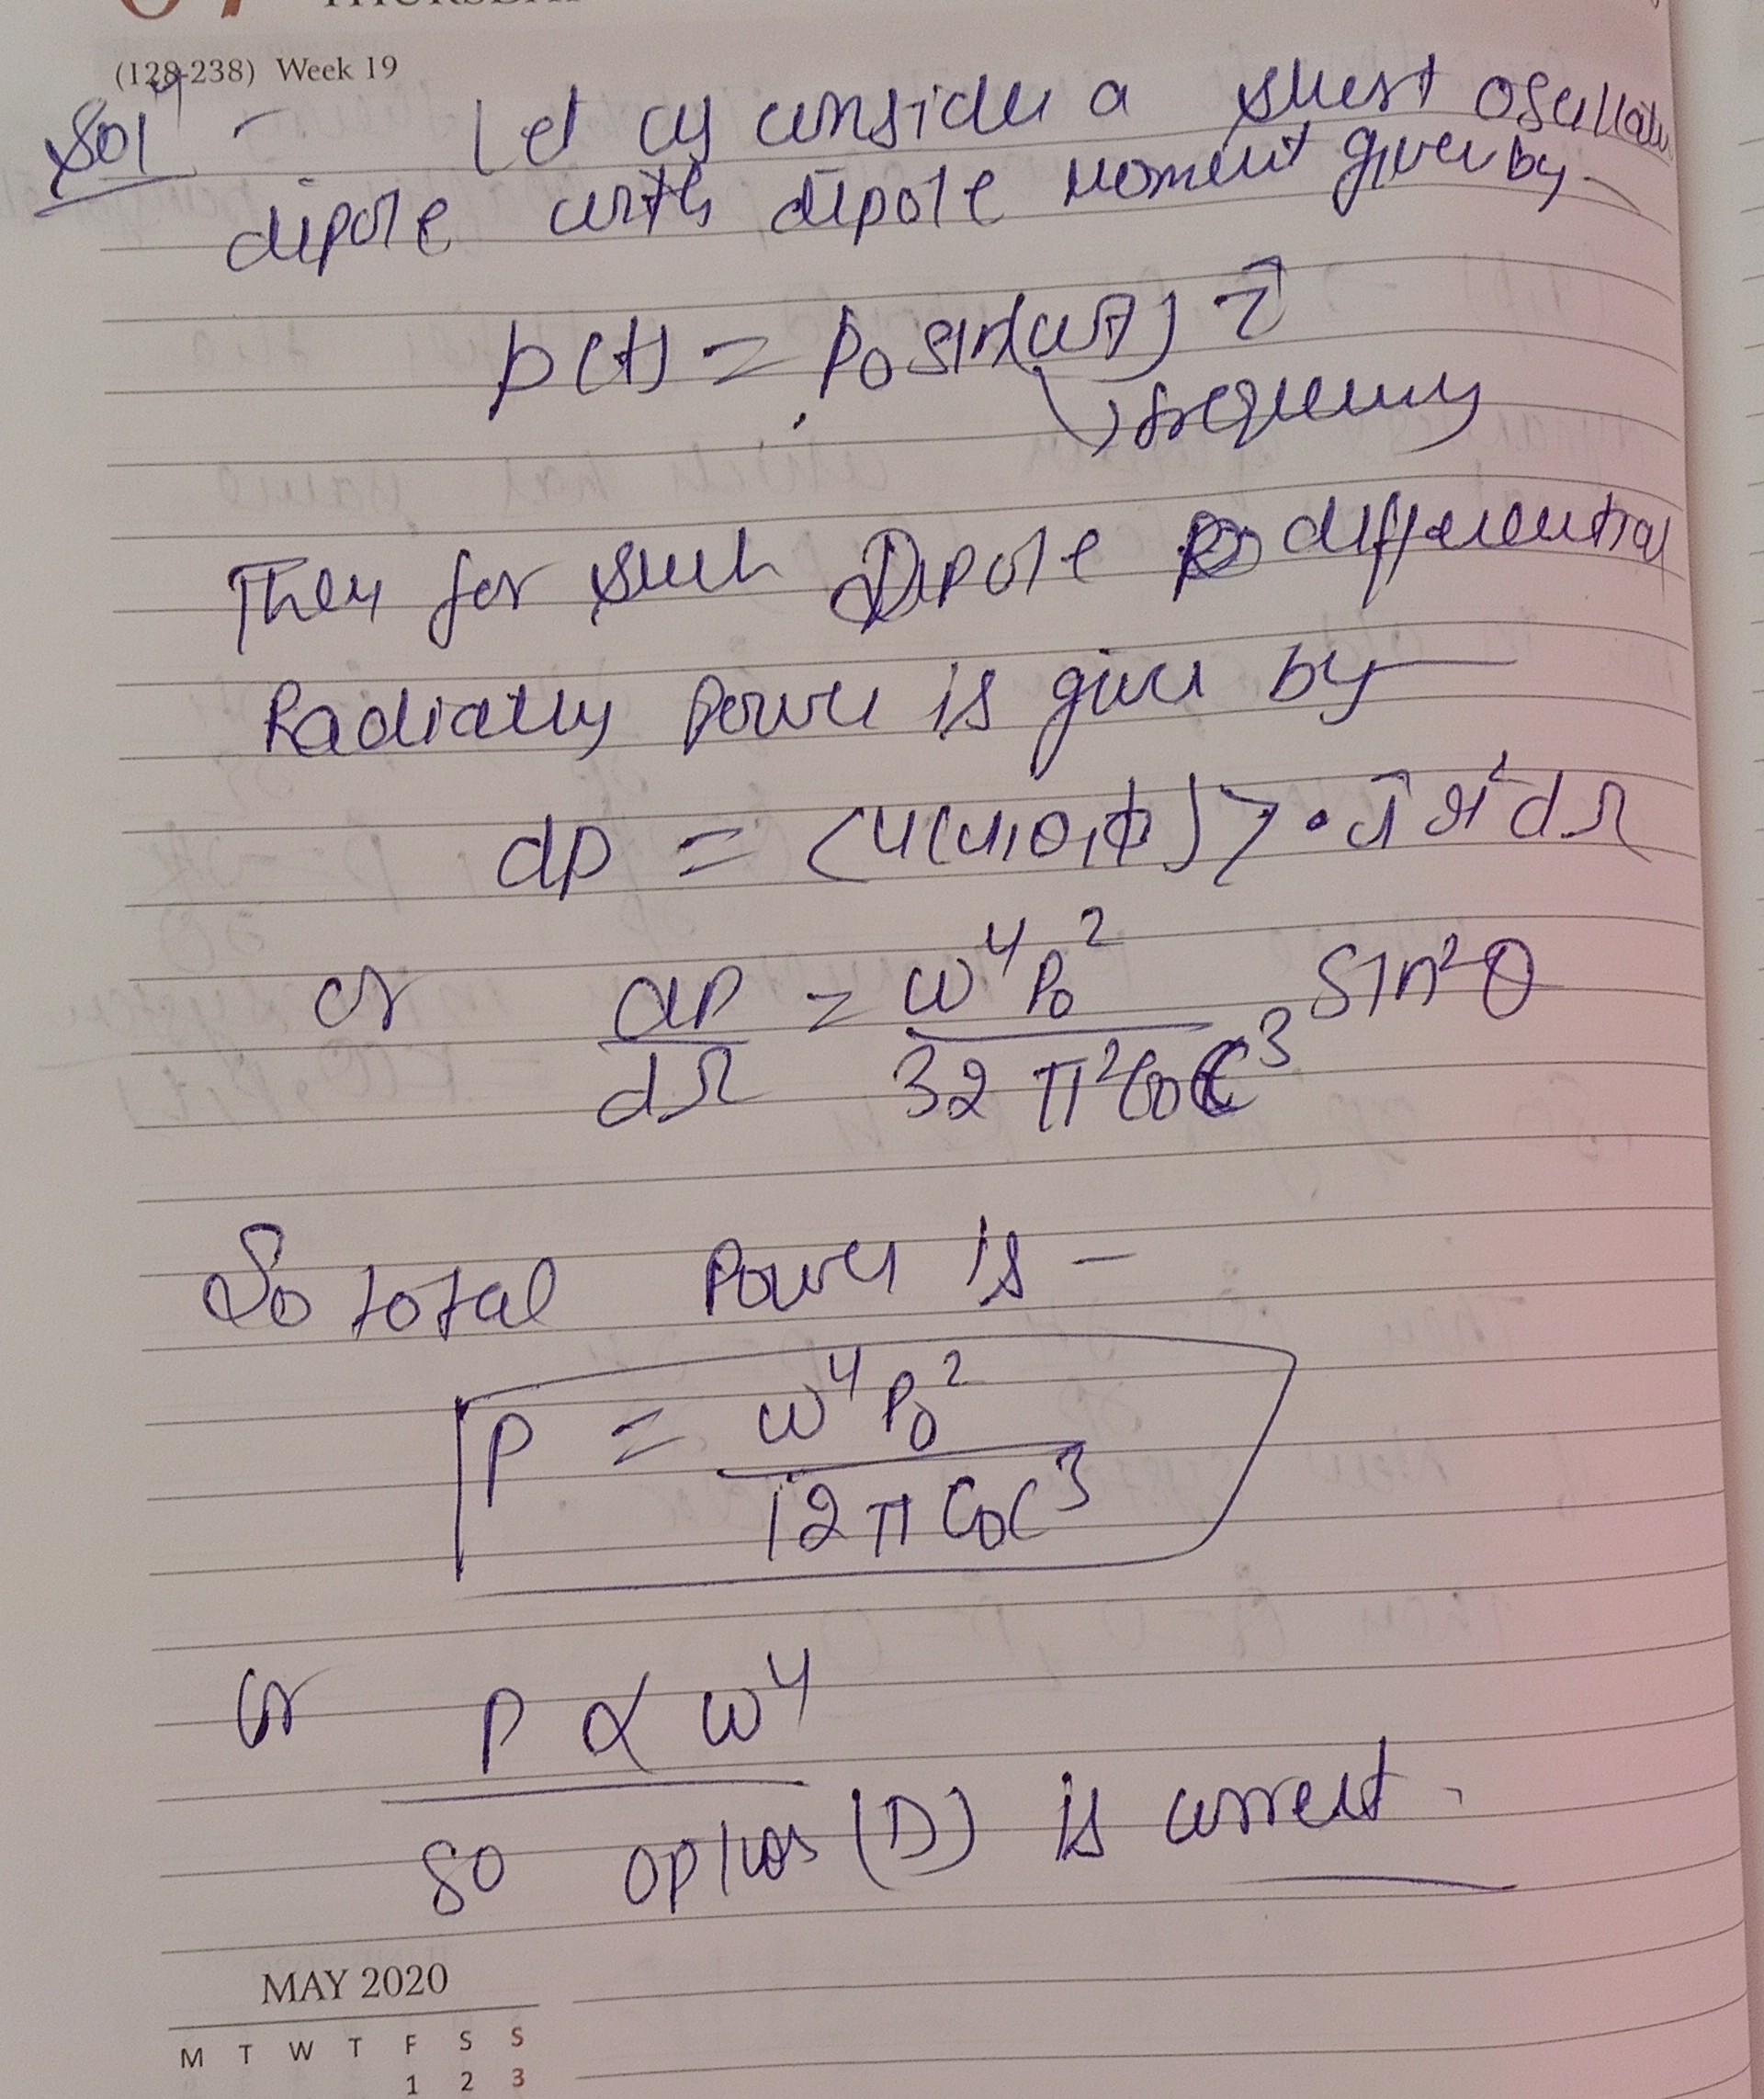 THURSDAY
(128-238) Week 19
Solⁿ - Let us consider a short oscillating
dipole with dipole moment given by -
p(t) = p₀ sin(ωt) ẑ
frequency
Then for such Dipole differential
Radiating Power is given by
dP = <u(r,θ,ϕ)> · r̂ r² dΩ
or dP/dΩ = ω⁴P₀² / 32π²ε₀C³ Sin²θ
So total Power is -
P = ω⁴P₀² / 12πε₀C³
or P ∝ ω⁴
So option (D) is correct.
MAY 2020
M T W T F S S
1 2 3